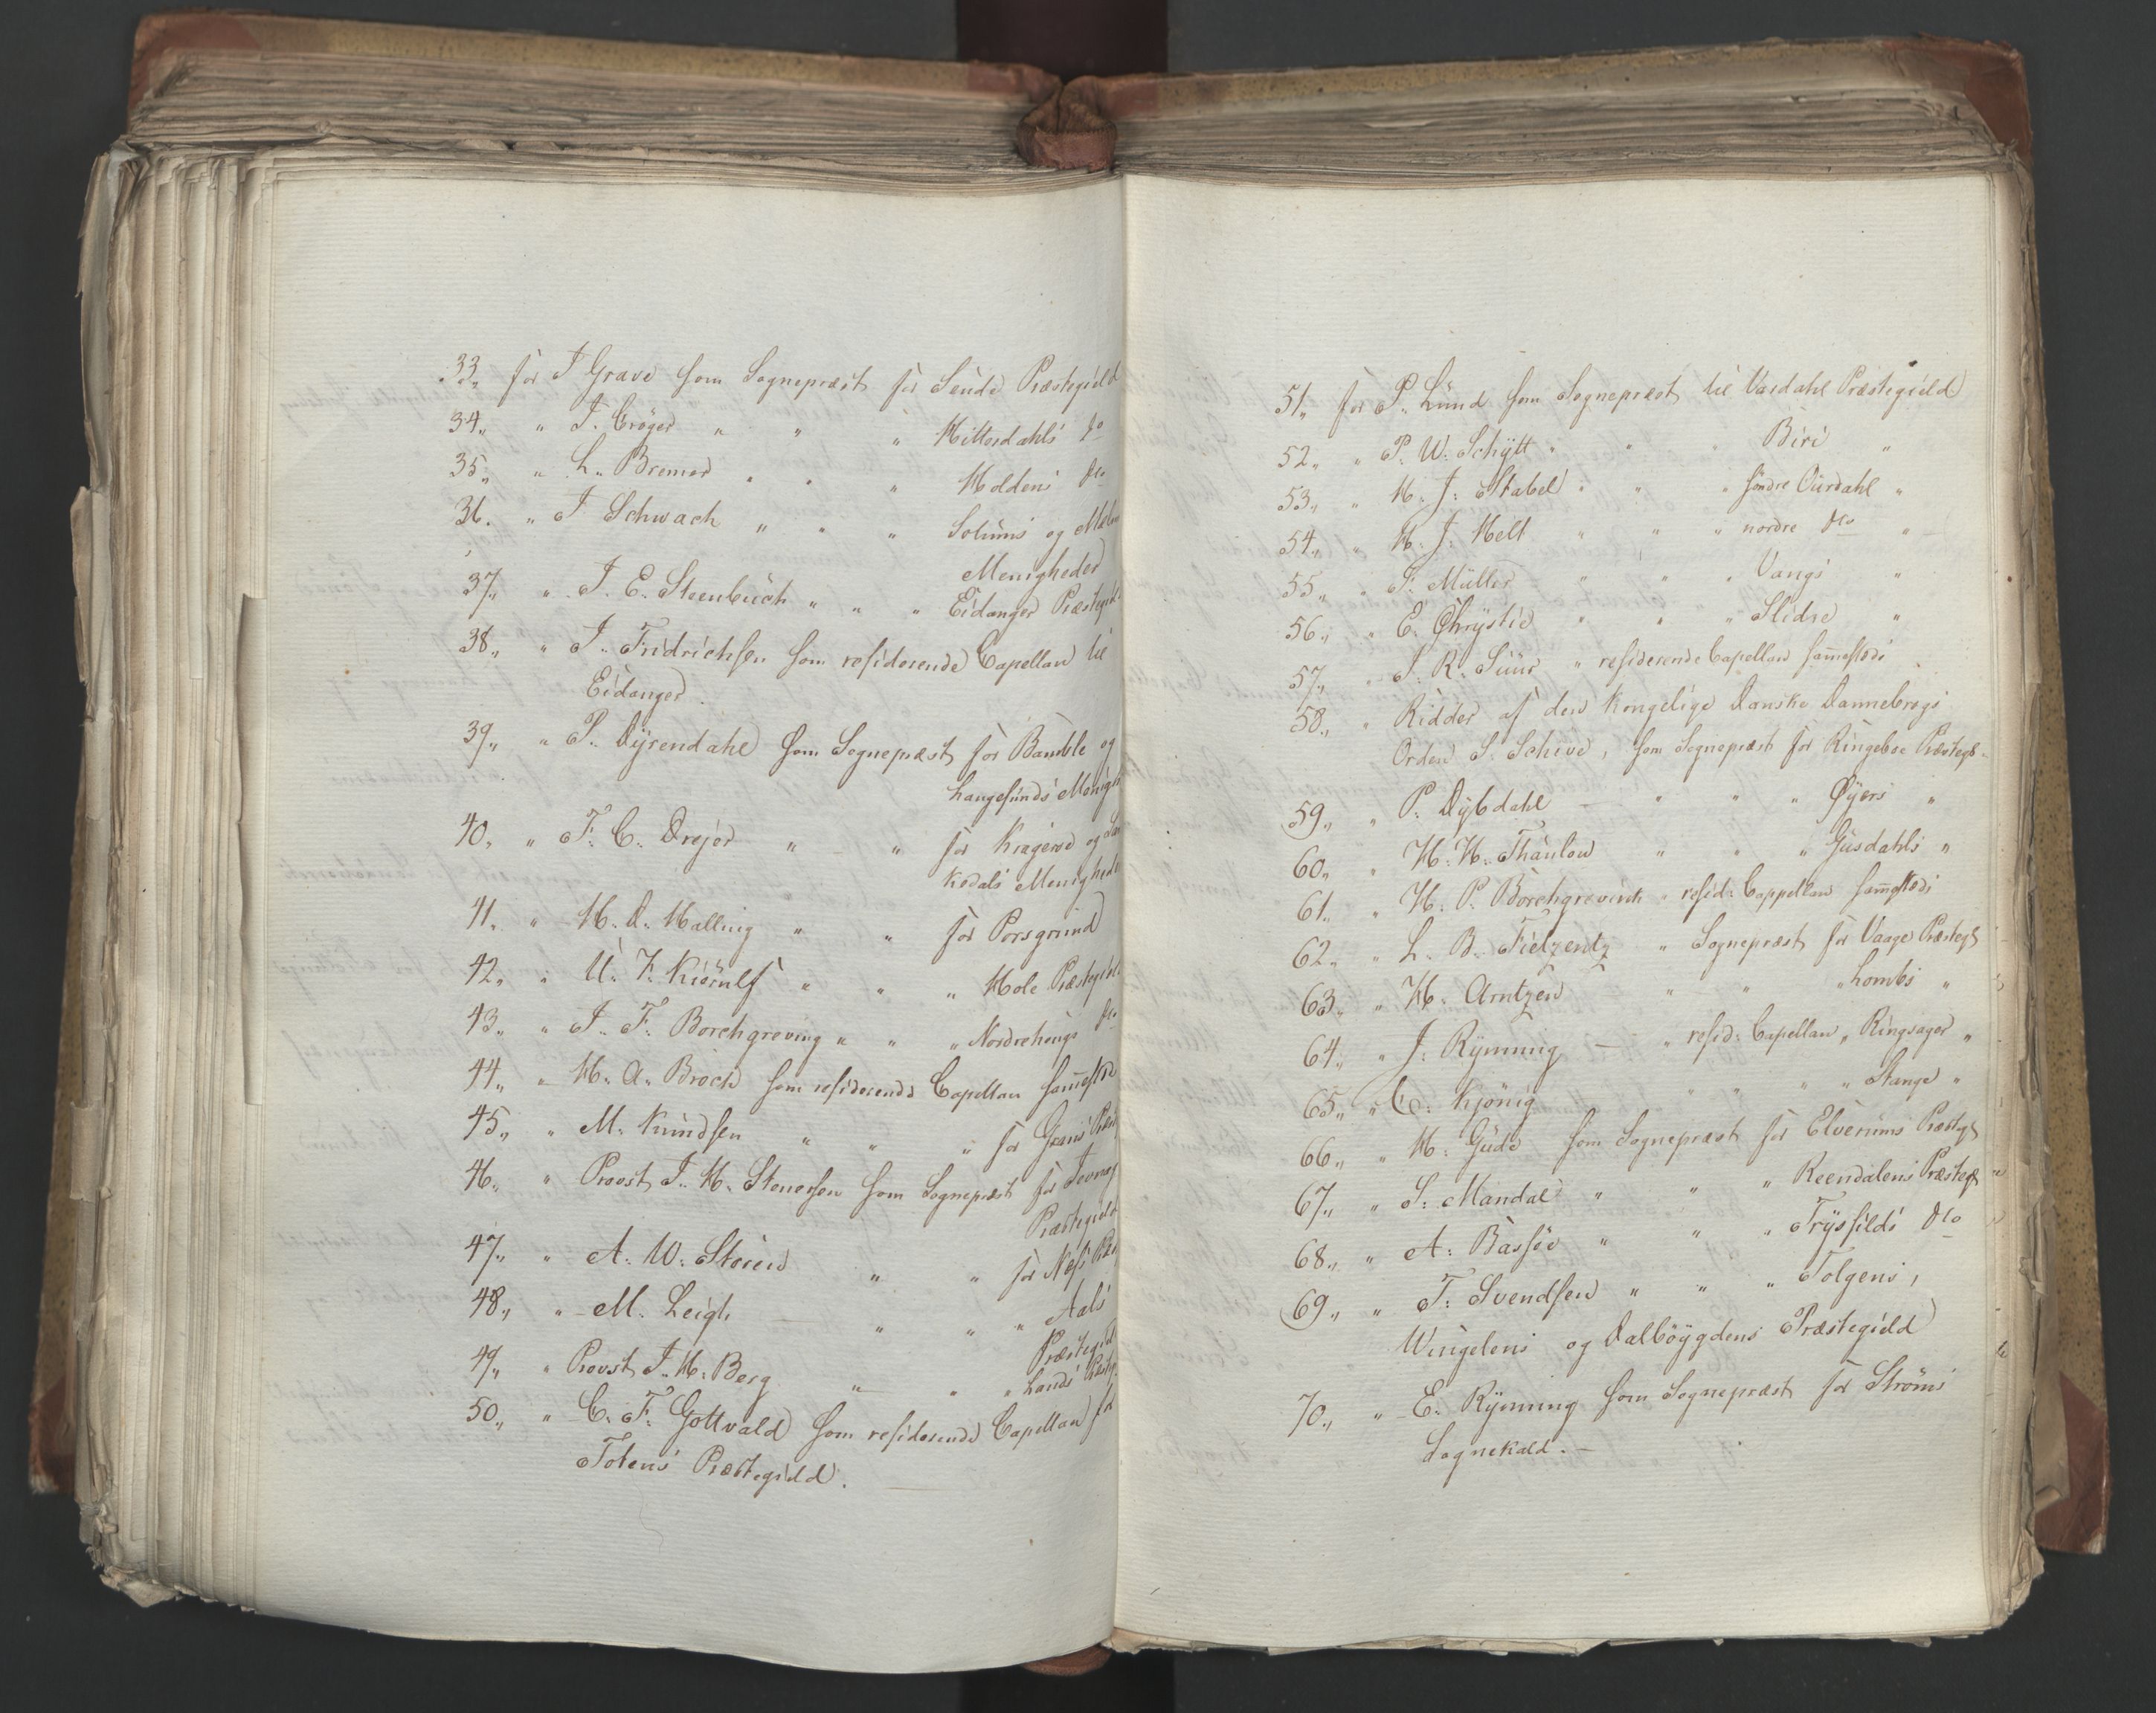 33„ for J Grave som Sognepræst for Sende Præstegield
34„ „ J. Crøger „ „ „ Hitterdahls do
35„ „ L. Bremer „ „ „ Holdens do
36. „ J Schwach „ „ „ Solums og
Menigheder
37„ „ J. E. Steenbuch „ „ „ Eidanger Præstegi
38„ „ J. Fridrichsen som residerende Capellan til
Eidanger.
39„ „ P. Dyrendahl som Sognepræst for Bamble og
Langesunds Menigh
40„ „ F. C. Drejer „ „ for Kragerøe og
Menighed
41„ „ H. D. Halling „ „ for Porsgrund
42„ „ U. F. Kiørulf „ „ „ Hole Præstegield
43„ „ J. F. Borchgreving „ „ „ Nordrehougs do
44„ „ H. A. Broch som residerende Capellan sammestd
45„ „ M. Knudsen „ „ „ for Grans Præs
46„ „ Provst J. H. Stenersen som Sognepræst for Jevnag
Præstegield
47„ „ A. W. Støren „ „ for Næss Præs
48„ „ M. Leigh „ „ „ Aals
Præstegield
49„ „ Provst J. H. Berg „ „ „ Lands Præsteg
50„ „ C. F. Gottvald som residerende Capellan for
Totens Præstegield.
51„ for P. Lund som Sognepræst til Vardahl Præstegield
52„ „ P. W. Schytt „ „ „ Biri „
53„ „ H. J. Stabel „ „ „ søndre Ourdahl „
54„ „ H. J. Helt „ „ „ nordre do „
55„ „ S. Müller „ „ „ Vangs „
56„ „ E. Chrystie „ „ „ Slidre „
57„ „ J. R. Suur „ residerende Capellan sammesteds
58„ „ Ridder af den Kongelige Danske Dannebrogs
Orden S. Schive, som Sognepræst for Ringeboe Præstegd.
59„ „ P. Dybdahl – „ „ „ Øyers „
60„ „ H. H. Thaulow „ „ „ Gusdahls „
61„ „ H. P. Borchgrevink „ resid: Cappellan sammesteds
62„ „ L. B. Fietzentz „ Sognepræst for Vaage Præstegd
63„ „ H. Arntzen „ „ „ Lombs „
64„ „ J. Rynning – „ resid: Capellan „ Ringsager „
65„ „ C. Kjønig „ „ „ „ Stange „
66„ „ H. Gude som Sognepræst for Elverums Præstgd
67„ „ S. Mandal „ „ „ Reendalens Præstegd
68„ „ A. Bassøe „ „ „ Trysfilds do
69„ „ T. Svendsen „ „ „ Tolgens,
Wingelens og Dalbøygdens Præstegield
70„ „ E. Rynning som Sognepræst for Strøms
Sognekald. –